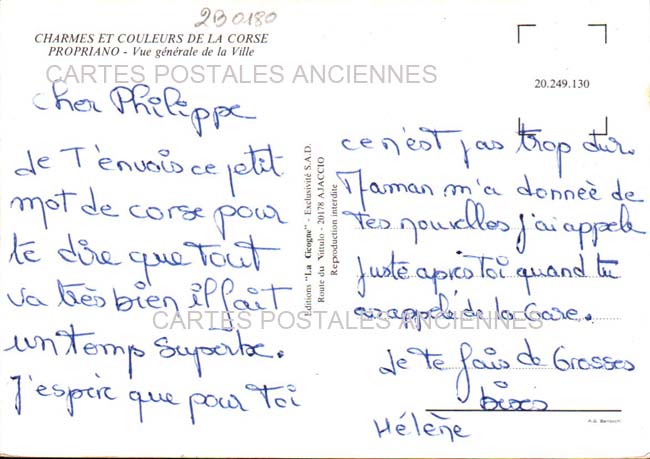 2B0180
CHARMES ET COULEURS DE LA CORSE
PROPRIANO - Vue générale de la Ville
CARTES POSTALES ANCIENNES
20.249.130
cher Philippe
Je T'envois ce petit
mot de corse pour
te dire que Tout
va très bien il fait
un temp superbe.
J'espère que pour Toi
Editions "La Cicogne" - Exclusivité S.A.D.
Route du Vittulo - 20178 AJACCIO
Reproduction interdite
ce n'est pas trop dur.
Maman m'a donneè de
tes nouvelles j'ai appele
juste apres Toi quand tu
as appelé de la Gare.
CARTES POSTALES ANCIENNES
Je te fais de Grosses
bises
Hélène